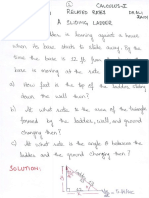 ② CALCULUS-I
RELATED RATES DR.ALI
A SLIDING LADDER
ladder is leaning against a house
when its base starts to slide away. By the
time the base is 12 ft from the
base is moving at the rate
a) How fast is the top of the ladder sliding
down the wall then?
b) At what rate is the area of the triangle
formed by the ladder, wall, and ground
changing then?
c) At what rate is the angle θ between the
ladder and the ground changing then?
SOLUTION: